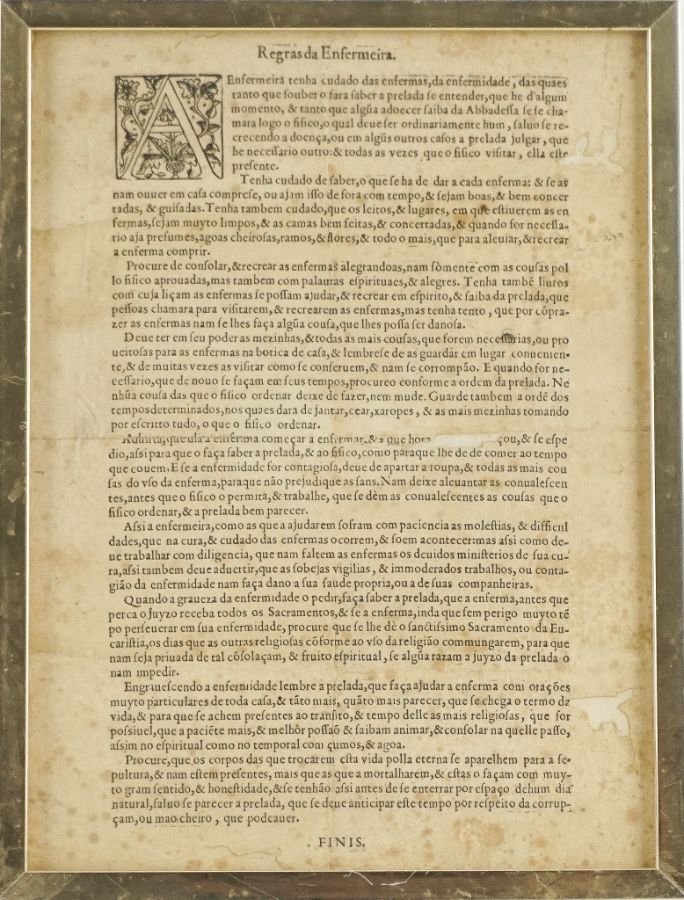 Regras da Enfermeira.
A Enfermeira tenha cudado das enfermas, da enfermidade, das quaes
tanto que souber o fara saber a prelada se entender, que he d'algum
momento, & tanto que algũa adoecer saiba da Abbadessa se se cha-
mara logo o fisico, o qual deue ser ordinariamente hum, saluo se re-
crecendo a doença, ou em algũs outros casos a prelada julgar, que
he necessario outro: & todas as vezes que o fisico visitar, ella este
presente.
Tenha cudado de saber, o que se ha de dar a cada enferma: & se as
nam ouuer em casa comprese, ou ajam isso de fora com tempo, & sejam boas, & bem concer
tadas, & guisadas. Tenha tambem cudado, que os leitos, & lugares, em que estiuerem as en
fermas, sejam muyto limpos, & as camas bem feitas, & concertadas, & quando for necessa-
rio aja prefumes, agoas cheirosas, ramos, & flores, & todo o mais, que para aleuiar, & recrear
a enferma comprir.
Procure de consolar, & recrear as enfermas alegrandoas, nam sòmente com as cousas pol
lo fisico aprouadas, mas tambem com palauras espirituaes, & alegres. Tenha tambẽ liuros
com cuja liçam as enfermas se possam ajudar, & recrear em espirito, & saiba da prelada, que
pessoas chamara para visitarem, & recrearem as enfermas, mas tenha tento, que por cõpra-
zer as enfermas nam se lhes faça algũa cousa, que lhes possa ser danosa.
Deue ter em seu poder as mezinhas, & todas as mais cousas, que forem necessarias, ou pro
ueitosas para as enfermas na botica de casa, & lembrese de as guardar em lugar conuenien-
te, & de muitas vezes as visitar como se conseruem, & nam se corrompão. E quando for ne-
cessario, que de nouo se façam em seus tempos, procureo conforme a ordem da prelada. Ne
nhũa cousa das que o fisico ordenar deixe de fazer, nem mude. Guarde tambem a ordẽ dos
tempos determinados, nos quaes dara de jantar, cear, xaropes, & as mais mezinhas tomando
por escritto tudo, o que o fisico ordenar.
a enferma começar a enfermar, & a que hora çou, & se espe
dio, assi para que o faça saber a prelada, & ao fisico, como paraque lhe de de comer ao tempo
que couem. E se a enfermidade for contagiosa, deue de apartar a roupa, & todas as mais cou
sas do vso da enferma, paraque não prejudique as sans. Nam deixe aleuantar as conualescen
tes, antes que o fisico o permita, & trabalhe, que se dem as conualescentes as cousas que o
fisico ordenar, & a prelada bem parecer.
Assi a enfermeira, como as que a ajudarem sofram com paciencia as molestias, & difficul
dades, que na cura, & cudado das enfermas ocorrem, & soem acontecer: mas assi como de-
ue trabalhar com diligencia, que nam faltem as enfermas os deuidos ministerios de sua cu-
ra, assi tambem deue aduertir, que as sobejas vigilias, & immoderados trabalhos, ou conta-
gião da enfermidade nam faça dano a sua saude propria, ou a de suas companheiras.
Quando a graueza da enfermidade o pedir, faça saber a prelada, que a enferma, antes que
perca o juyzo receba todos os Sacramentos, & se a enferma, inda que sem perigo muyto tẽ
po perseuerar em sua enfermidade, procure que se lhe dè o sanctissimo Sacramento da Eu-
caristia, os dias que as outras religiosas cõforme ao vso da religião commungarem, para que
nam seja priuada de tal cõsolaçam, & fruito espiritual, se algũa razam a juyzo da prelada o
nam impedir.
Engrauescendo a enfermidade lembre a prelada, que faça ajudar a enferma com orações
muyto particulares de toda casa, & tãto mais, quãto mais parecer, que se chega o termo da
vida, & para que se achem presentes ao transito, & tempo delle as mais religiosas, que for
possiuel, que a paciẽte mais, & melhòr possaõ & saibam animar, & consolar na quelle passo,
assim no espiritual como no temporal com çumos, & agoa.
Procure, que os corpos das que trocarem esta vida polla eterna se aparelhem para a se-
pultura, & nam estem presentes, mais que as que a mortalharem, & estas o façam com muy-
to gram sentido, & honestidade, & se tenhão assi antes de se enterrar por espaço dehum dia
natural, saluo se parecer a prelada, que se deue anticipar este tempo por respeito da corrup-
çam, ou mao cheiro, que podeauer.
. FINIS.